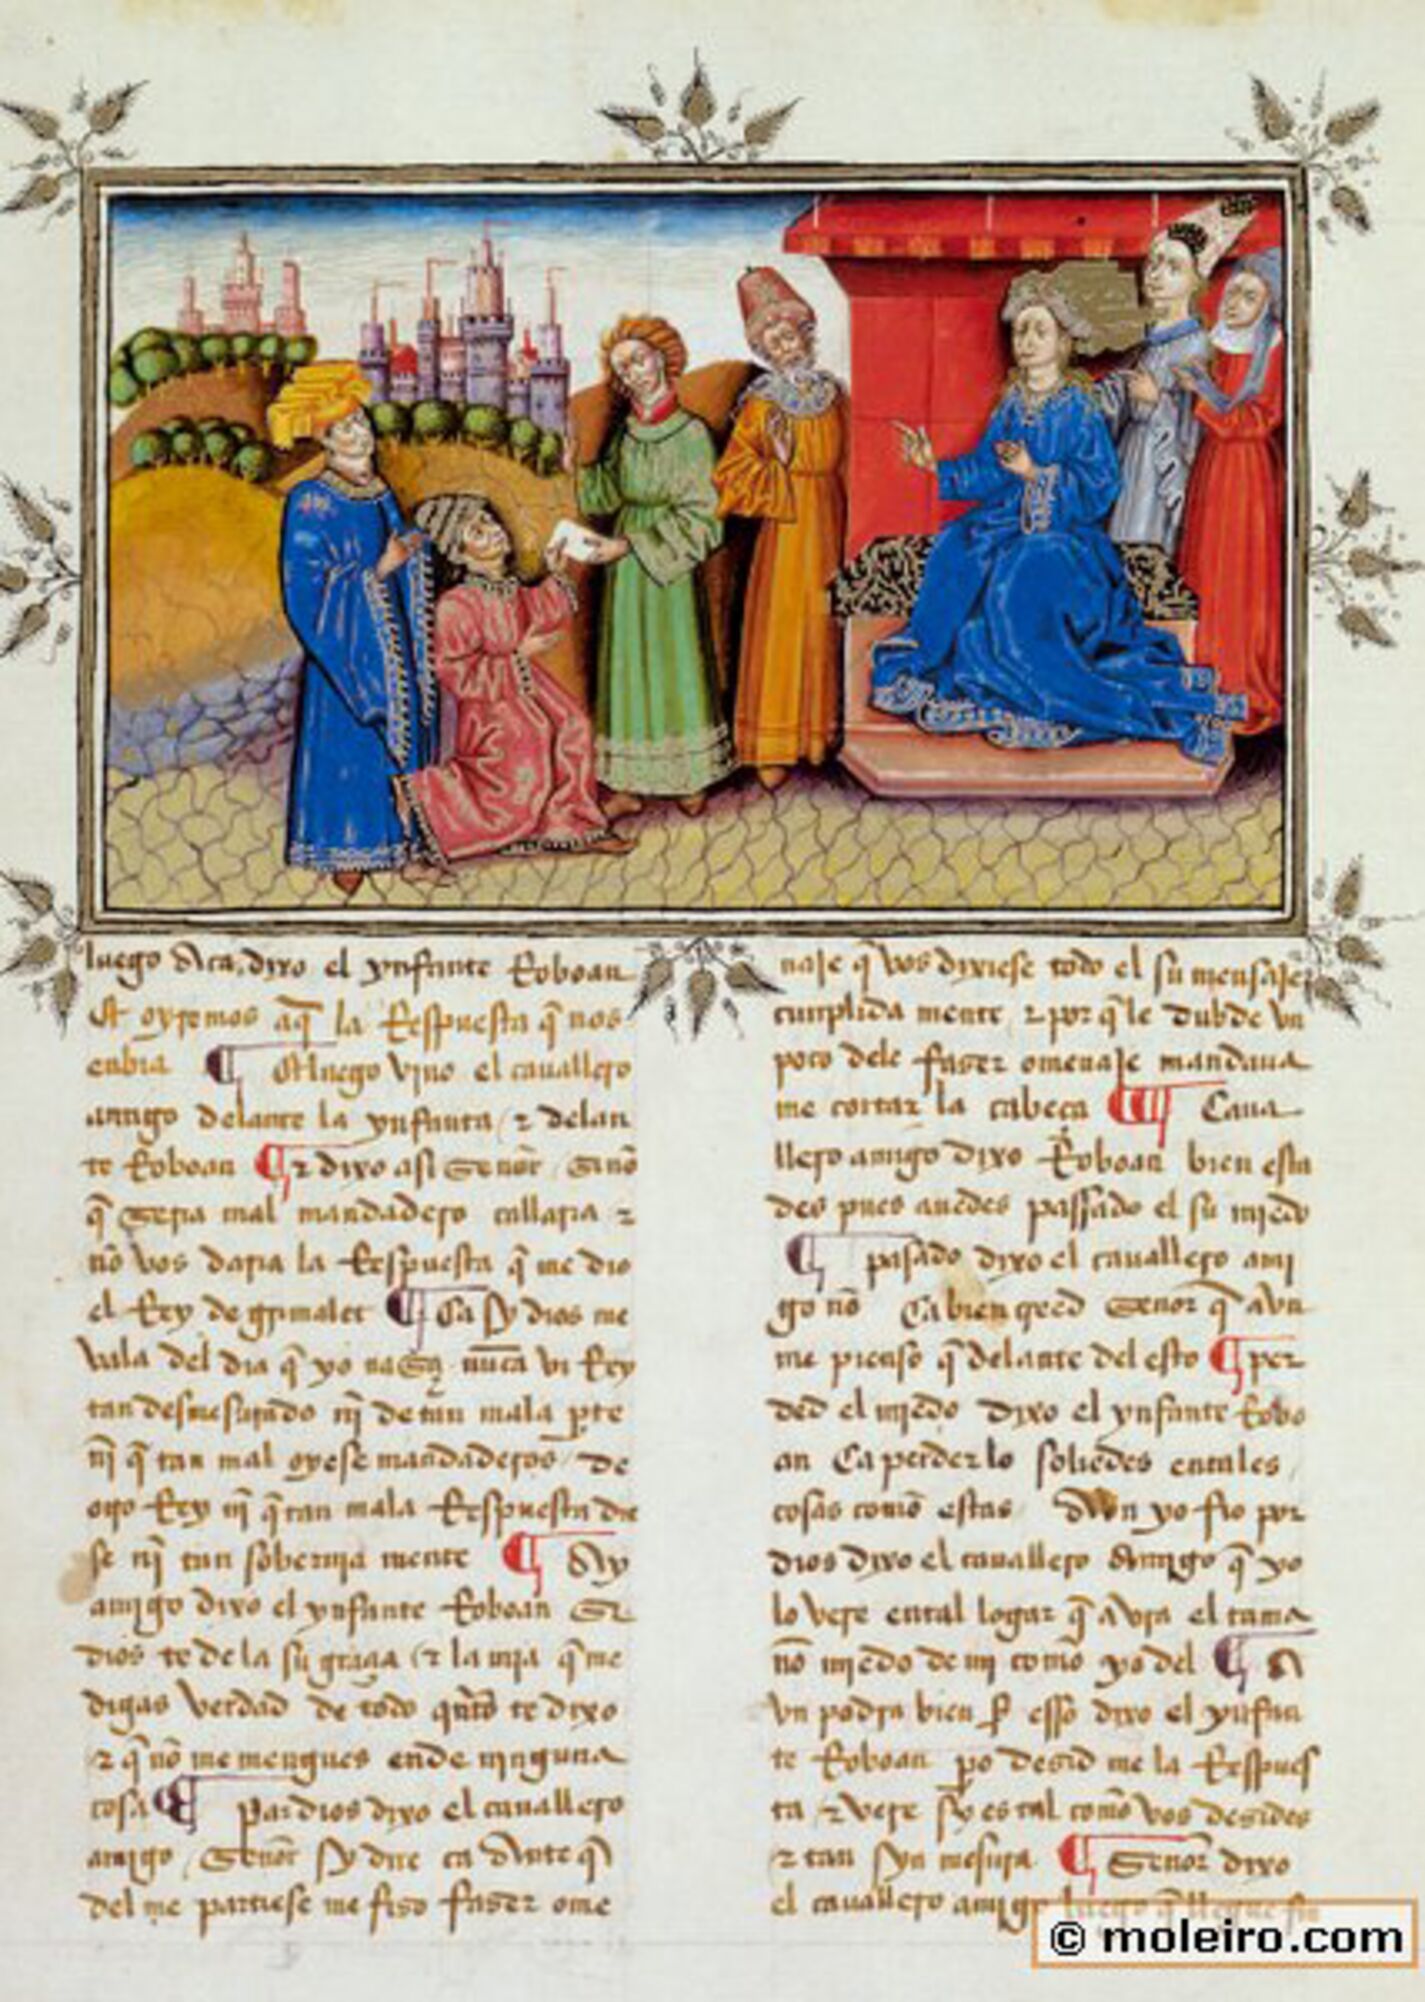 luego aca, dixo el ynfante Roboan
At oyremos aq̃ la Respuesta q̃ nos
enbia ¶ Aluego vino el cauallero
amigo delante la ynfanta / ⁊ delan
te Roboan ¶ ⁊ dixo asi Señor, sinõ
q̃ seria mal mandadero callaria ⁊
nõ vos daria la Respuesta q̃ me dio
el Rey de grimalet ¶ Ca sy dios me
vala del dia q̃ yo nasçy nunca vi Rey
tan desmesurado nj̃ de tan mala p̱te
nj̃ q̃ tan mal oyese mandaderos / de
otro Rey nj̃ q̃ tan mala Respuesta die
se nj̃ tan soberuia mente ¶ Ay
amigo dixo el ynfante Roboan Si
dios te dela su graçia / ⁊ la mia q̃ me
digas verdad de todo q̃nto te dixo
⁊ q̃ nõ me mengues ende ninguna
cosa ¶ Par dios dixo el cauallero
amigo / Señor sy dire ca Ante q̃
del me partiese me fiso faser ome
naje q̃ vos dixiese todo el su mensaje
cunplida mente, ⁊ por q̃ le dubde vn
poco dele faser omenaje mandaua
me cortar la cabeça ¶ Caua
llero amigo dixo Roboan bien esta
des pues auedes passado el su miedo
¶ pasado dixo el cauallero ami
go nõ Ca bien creed Señor q̃ avn
me pienso q̃ delante del esto ¶ per
ded el miedo dixo el ynfante Robo
an Ca perder lo soliedes en tales
cosas comõ estas Avn yo fio por
dios dixo el cauallero Amigo q̃ yo
lo vere en tal logar q̃ avra el tama
nõ miedo de mi comõ yo del ¶ A
vn podria bien s̃ esso dixo el ynfan
te Roboan po desid me la Respues
ta ⁊ vere sy es tal comõ vos desides
⁊ tan syn mesura ¶ Señor dixo
el cauallero amigo luego q̃ llegue
© moleiro.com